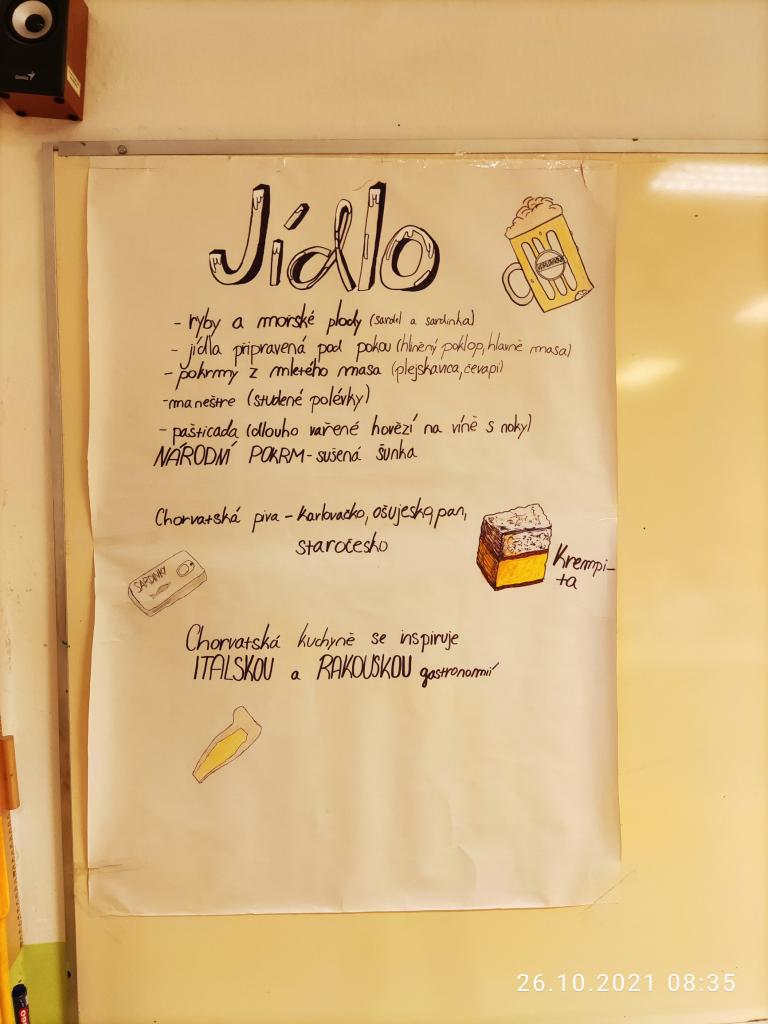 Jídlo
- ryby a mořské plody (sardel a sardinka)
- jídla připravená pod pokou (hliněný poklop, hlavně masa)
- pokrmy z mletého masa (plejskavica, čevapi)
- maneštre (studené polévky)
- pašticada (dlouho vařené hovězí na víně s noky)
NÁRODNÍ POKRM - sušená šunka
Chorvatská piva - karlovačko, ošujesko, pan,
staročesko
SARDINKY
Krempi-
ta
Chorvatská kuchyně se inspiruje
ITALSKOU a RAKOUSKOU gastronomií
26.10.2021 08:35